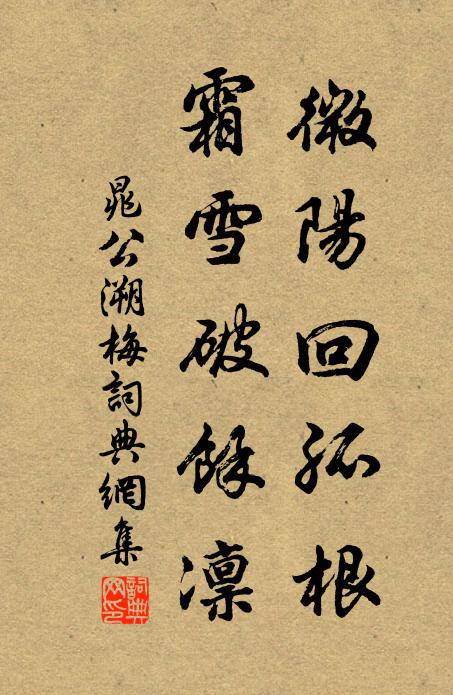 微陽回孤根
霜雪破餘凛
晁公溯梅詞典網集
詞典网印